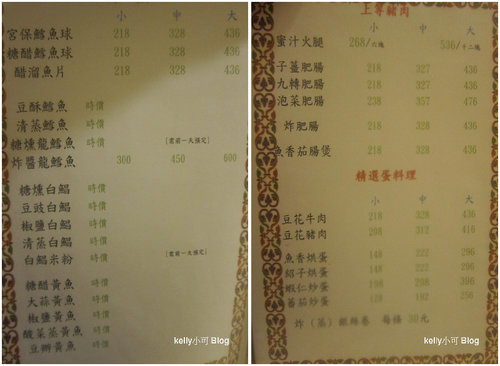 小 中 大
宮保鱈魚球 218 328 436
糖醋鱈魚球 218 328 436
醋溜魚片 218 328 436
豆酥鱈魚 時價
清蒸鱈魚 時價
糖燻龍鱈魚 時價 (需前一天預定)
炸醬龍鱈魚 300 450 600
糖燻白鯧 時價
豆豉白鯧 時價
椒鹽白鯧 時價
清蒸白鯧 時價
白鯧米粉 時價 (需前一天預定)
糖醋黃魚 時價
大蒜黃魚 時價
椒鹽黃魚 時價
酸菜蒸黃魚 時價
豆瓣黃魚 時價
kelly小可 Blog
上等豬肉
小 中 大
蜜汁火腿 268/六塊 536/十二塊
子薑肥腸 218 327 436
九轉肥腸 218 327 436
泡菜肥腸 238 357 476
炸肥腸 218 328 436
魚香茄腸煲 218 328 436
精選蛋料理
小 中 大
豆花牛肉 218 328 436
豆花豬肉 208 312 416
魚香烘蛋 148 222 296
紹子烘蛋 148 222 296
蝦仁炒蛋 198 298 396
蕃茄炒蛋 128 192 256
炸(蒸)銀絲卷 每條 30元
kelly小可 Blog